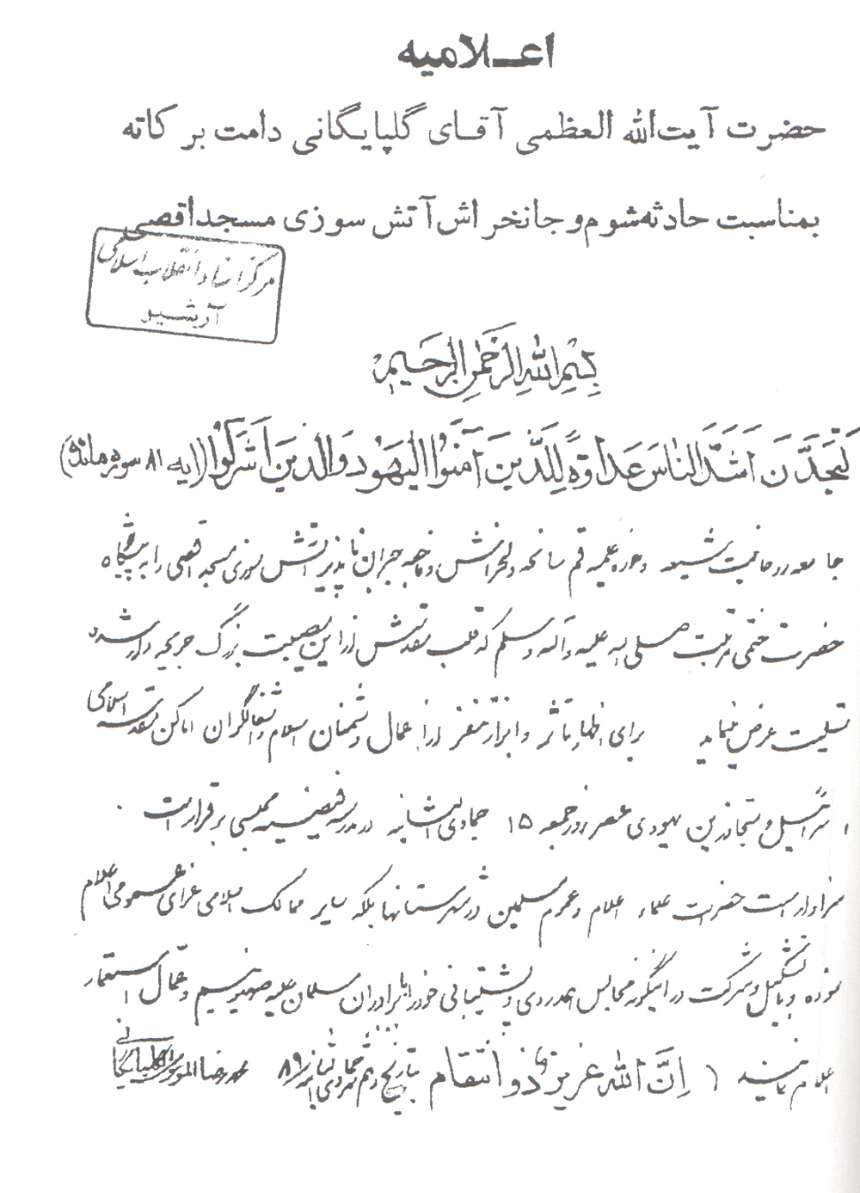 اعـلامیه
حضرت آیت‌الله العظمی آقای گلپایگانی دامت برکاته
بمناسبت حادثه شوم و جانخراش آتش سوزی مسجد اقصی
مرکز اسناد انقلاب اسلامی
آرشیو
بِسْمِ اللهِ الرَّحْمٰنِ الرَّحِیمِ
لَتَجِدَنَّ اَشَدَّ النّاسِ عَداوَةً لِلَّذینَ آمَنُوا الیَهُودَ وَالَّذینَ اَشْرَکُوا (آیه ۸۱ سوره مائده)
جامعه روحانیت شیعه و حوزه علمیه قم سانحه دلخراش و فاجعه جبران ناپذیر آتش سوزی مسجد اقصی را به پیشگاه
حضرت ختمی مرتبت صلی الله علیه و آله و سلم که قلب مقدسش از این مصیبت بزرگ جریحه دار شد
تسلیت عرض مینماید برای اظهار تأثر و ابراز تنفر از اعمال دشمنان اسلام و اشغالگران اماکن مقدسه اسلامی
اسرائیل و متجاوزین یهودی عصر روز جمعه ۱۵ جمادی الثانیه در مدرسه فیضیه مجلسی برقرار است .
سزاوار است حضرات علماء اعلام و عموم مسلمین در شهرستانها بلکه سایر ممالک اسلامی عزای عمومی اعلام
نموده و با تشکیل و شرکت در اینگونه مجالس همدردی و پشتیبانی خود را با برادران مسلمان علیه صهیونیسم و عمال استعمار
اعلام نمایند اِنَّ اللهَ عَزیزٌ ذو انتقام بتاریخ دهم جمادی الثانیه ۸۹ محمد رضا الموسوی الگلپایگانی